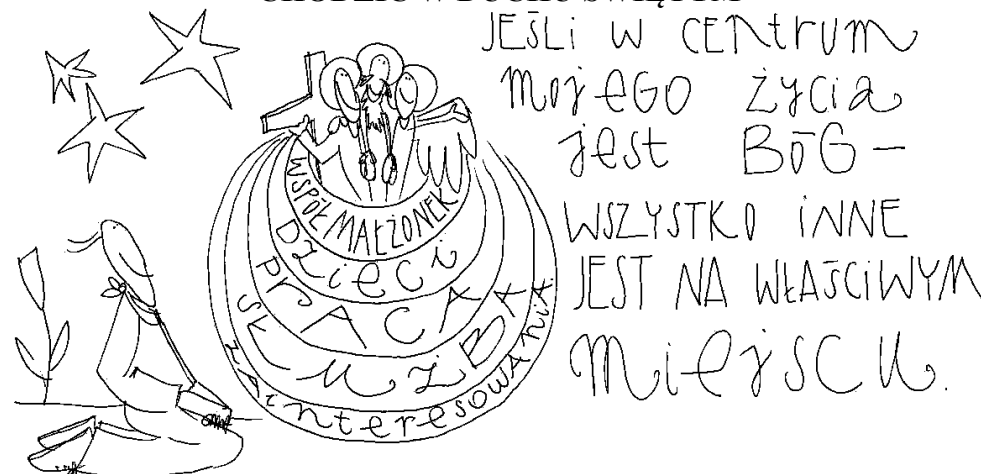 CHODZIĆ W DUCHU ŚWIĘTYM
JEŚLI W CENTRUM
MOJEGO ŻYCIA
JEST BÓG –
WSZYSTKO INNE
JEST NA WŁAŚCIWYM
MIEJSCU.
WSPÓŁMAŁŻONEK
DZIECI
PRACA
SŁUŻBA
ZAINTERESOWANIA